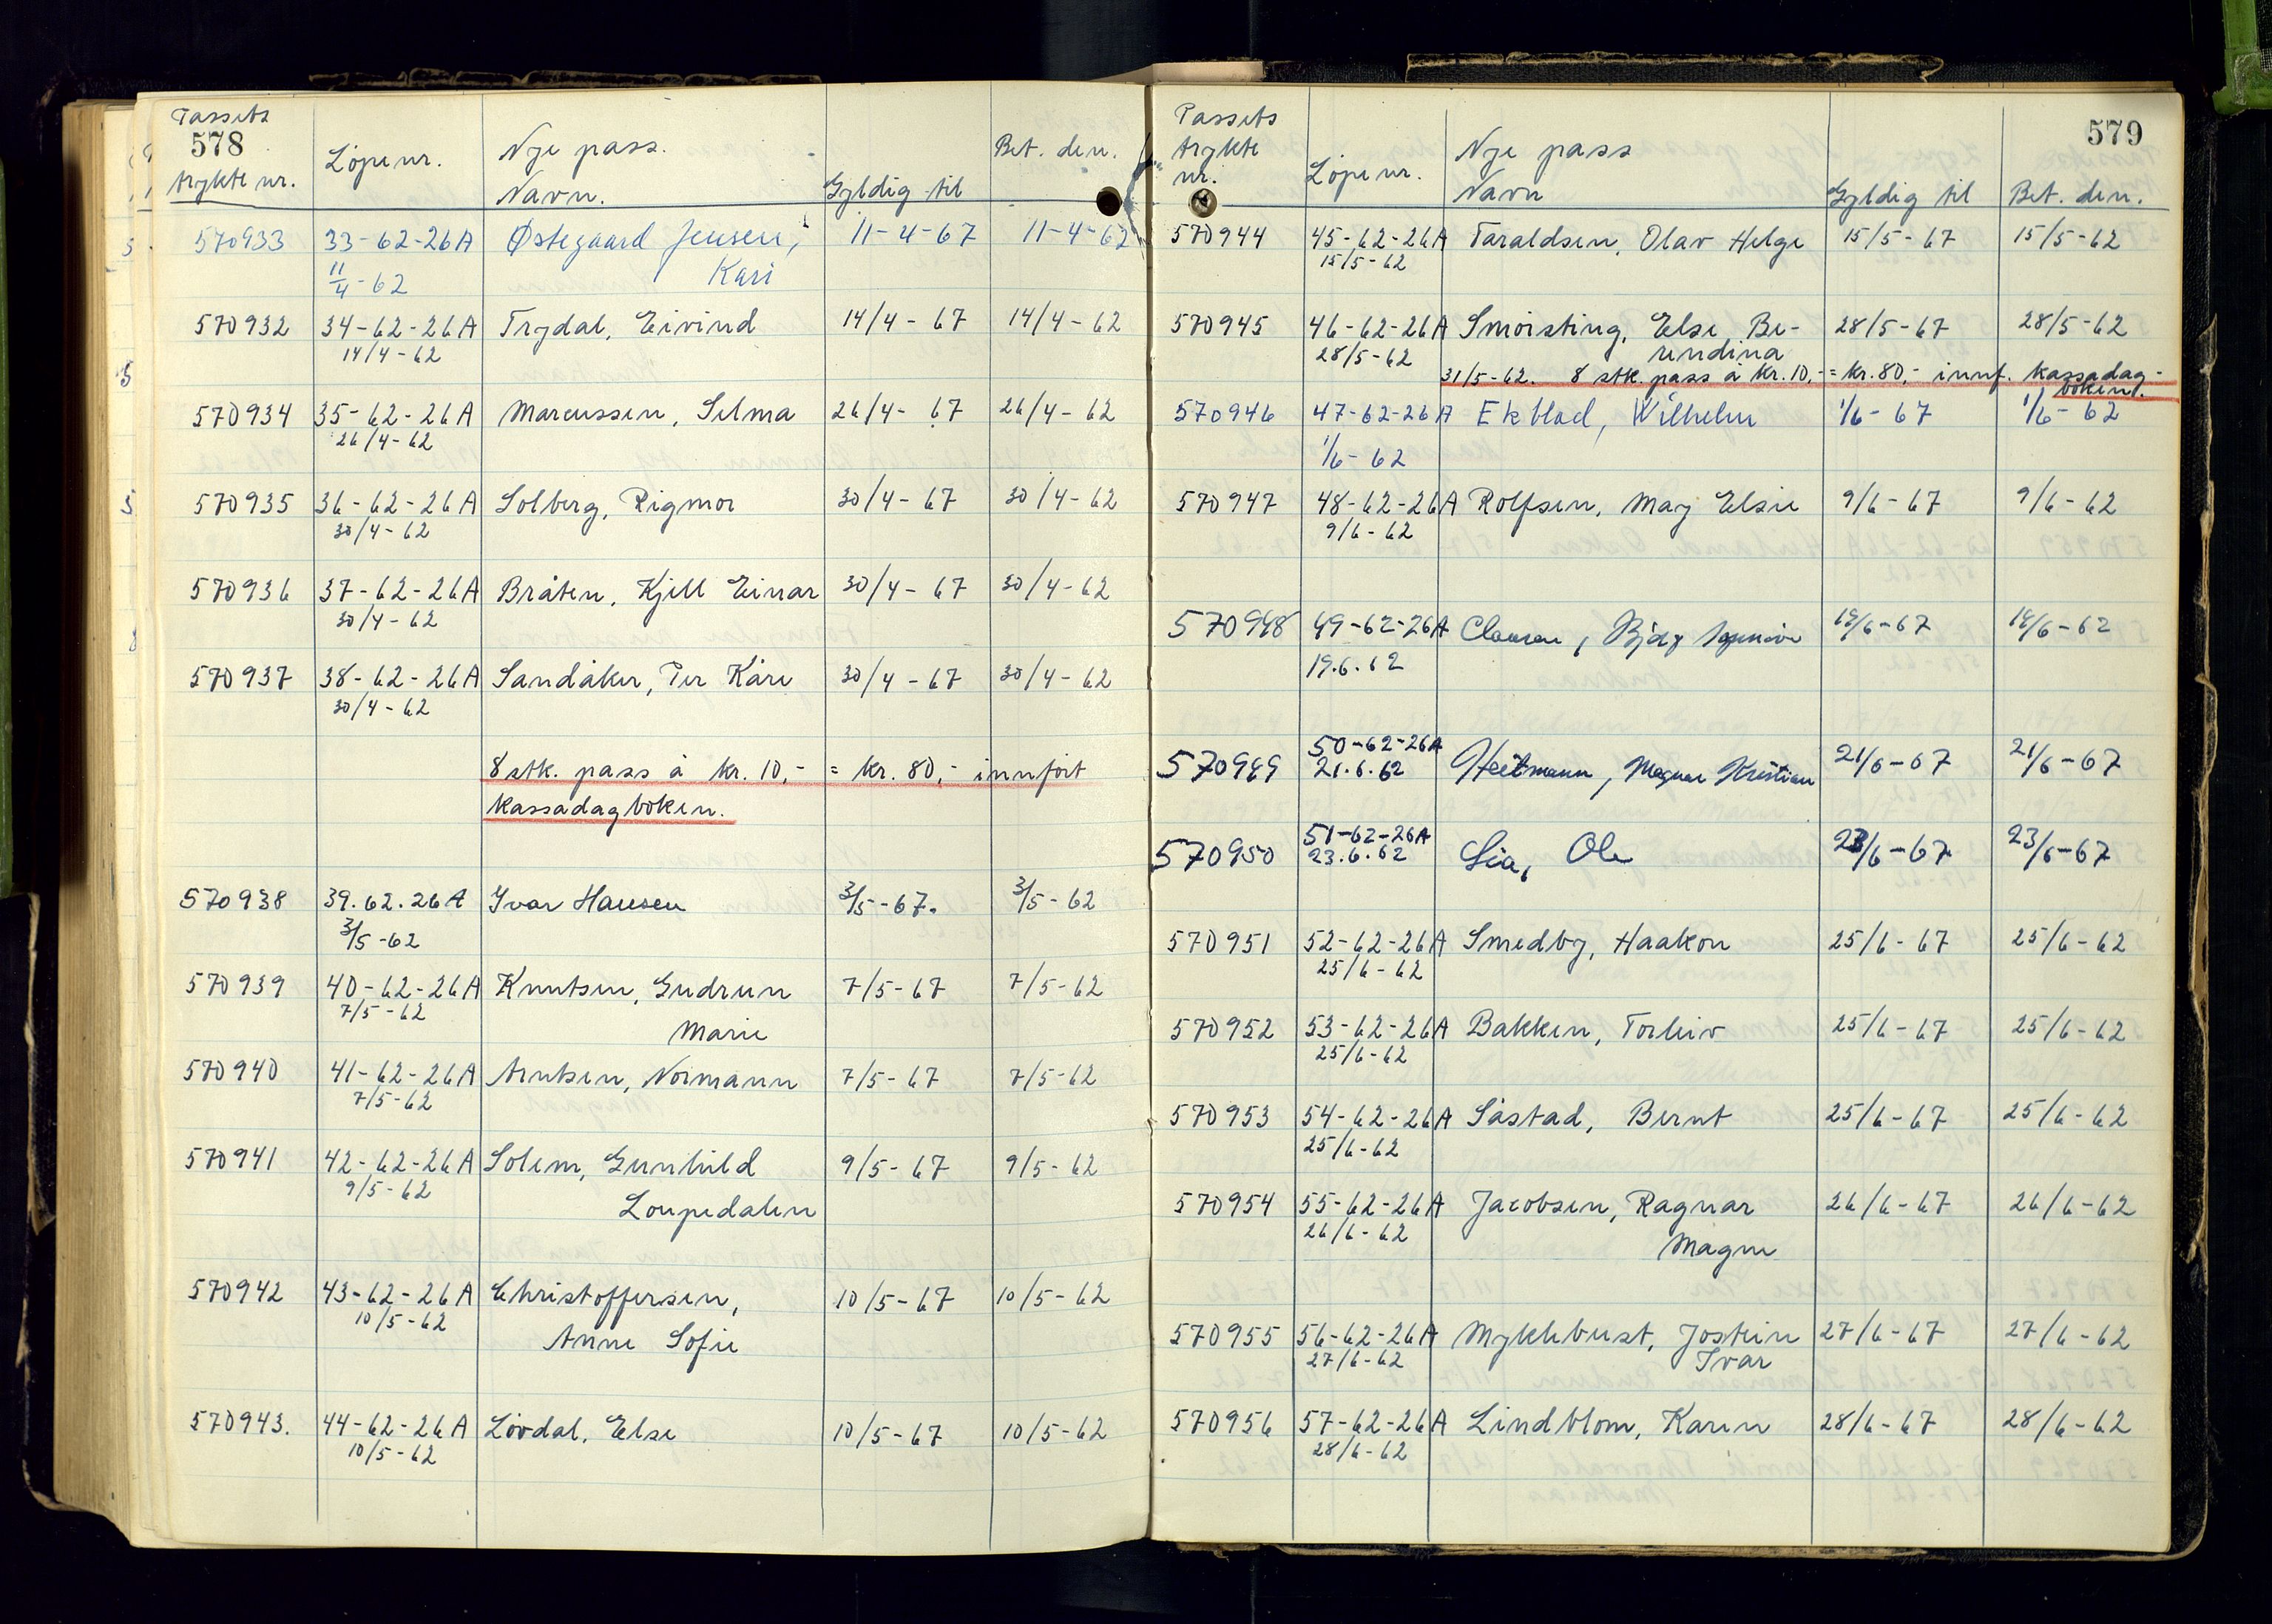 Passets
578
trykte nr.
Löpe nr.
Nye pass.
Navn.
Gyldig til
Bet. den.
570933 33-62-26A Østegaard Jensen, 11-4-67 11-4-62
11/4-62 Kari
570932 34-62-26A Trydal, Eivind 14/4-67 14/4-62
14/4-62
570934 35-62-26A Marcussen, Selma 26/4-67 26/4-62
26/4-62
570935 36-62-26A Solberg, Rigmor 30/4-67 30/4-62
30/4-62
570936 37-62-26A Bråten, Kjell Einar 30/4-67 30/4-62
30/4-62
570937 38-62-26A Sandåker, Per Kåre 30/4-67 30/4-62
30/4-62
8 stk. pass à kr. 10,- = kr. 80,- innført
kassadagboken.
570938 39.62.26A Ivar Hansen 3/5-67. 3/5-62
3/5-62
570939 40-62-26A Knutsen, Gudrun 7/5-67 7/5-62
7/5-62 Marie
570940 41-62-26A Arntsen, Normann 7/5-67 7/5-62
7/5-62
570941 42-62-26A Solem, Gunhild 9/5-67 9/5-62
9/5-62 Loupedalen
570942 43-62-26A Christoffersen, 10/5-67 10/5-62
10/5-62 Anne Sofie
570943. 44-62-26A Lövdal, Else 10/5-67 10/5-62
10/5-62
Passets
trykte
nr.
Löpe nr.
Nye pass
Navn
579
Gyldig til
Bet. den.
570944 45-62-26A Taraldsen, Olav Helge 15/5-67 15/5-62
15/5-62
570945 46-62-26A Smörsting, Else Be- 28/5-67 28/5-62
28/5-62 rundina
31/5-62. 8 stk. pass à kr. 10,- = kr. 80,- innf. kassadag-
boken.
570946 47-62-26A Ekblad, Wilhelm 1/6-67 1/6-62
1/6-62
570947 48-62-26A Rolfsen, May Elsie 9/6-67 9/6-62
9/6-62
570948 49-62-26A Clausen, Bjørg 19/6-67 19/6-62
19.6.62
570949 50-62-26A Heitmann, Magnar Kristian 21/6-67 21/6-67
21.6.62
570950 51-62-26A Lia, Ole 23/6-67 23/6-67
23.6.62
570951 52-62-26A Smedby, Haakon 25/6-67 25/6-62
25/6-62
570952 53-62-26A Bakken, Torleiv 25/6-67 25/6-62
25/6-62
570953 54-62-26A Såstad, Bernt 25/6-67 25/6-62
25/6-62
570954 55-62-26A Jacobsen, Ragnar 26/6-67 26/6-62
26/6-62 Magne
570955 56-62-26A Myklebust, Jostein 27/6-67 27/6-62
27/6-62 Ivar
570956 57-62-26A Lindblom, Karen 28/6-67 28/6-62
28/6-62